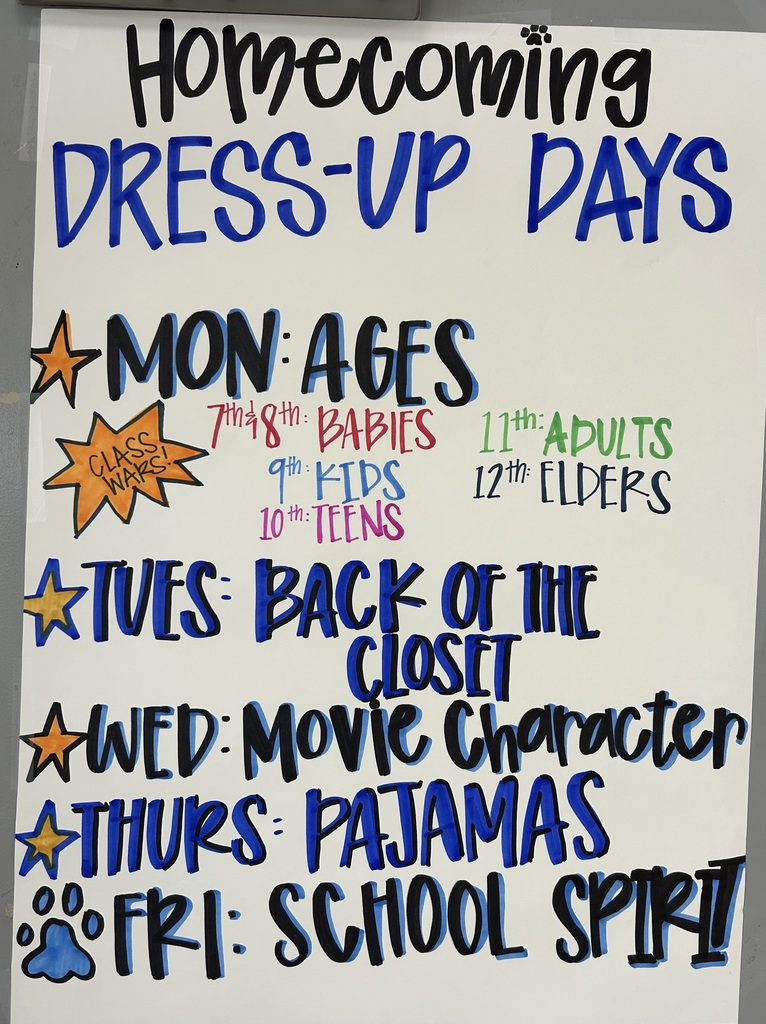 Homecoming
DRESS-UP DAYS
MON: AGES
CLASS
WARS!
7th & 8th: BABIES
9th: KIDS
10th: TEENS
11th: ADULTS
12th: ELDERS
TUES: BACK OF THE
CLOSET
WED: Movie Character
THURS: PAJAMAS
FRI: SCHOOL SPIRIT!